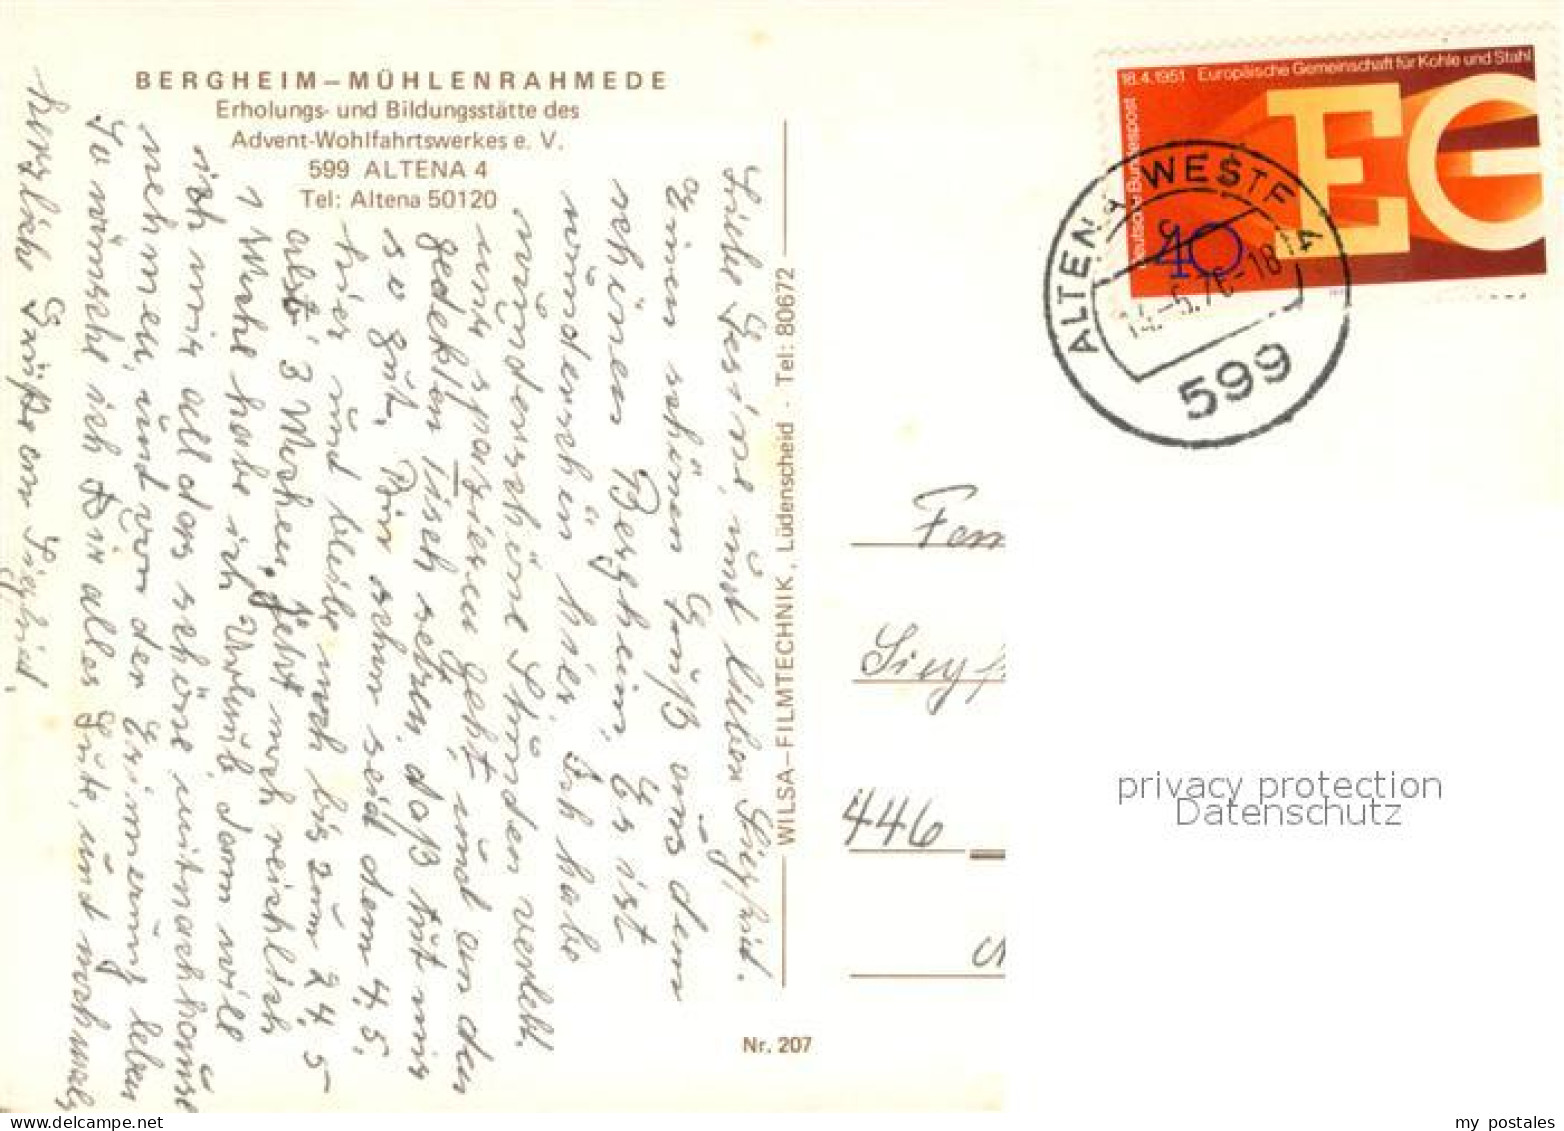 BERGHEIM–MÜHLENRAHMEDE
Erholungs- und Bildungsstätte des
Advent-Wohlfahrtswerkes e. V.
599 ALTENA 4
Tel: Altena 50120
Liebe Gesine, und lieber Siegfried.
Einen schönen Gruß aus dem
schönen Bergheim, Es ist
wunderschön hier. Ich habe
wunderschöne Stunden verlebt.
um spazieren geht, und an den
gedekten Tisch setzen. daß tut mir
so gut, Bin schon seid dem 4. 5.
hier und bleibe noch bis zum 24. 5
also 3 Wochen. Jetzt noch reichlich
1 Woche habe ich Urlaub, dann will
ich mir all das schöne mitnachhause
nehmen, und von der Erinnerung leben
So wünsche ich Dir alles Gute, und nochmals
herzliche Grüße
WILSA–FILMTECHNIK, Lüdenscheid · Tel: 80672
Nr. 207
18.4.1951 Europäische Gemeinschaft für Kohle und Stahl
Deutsche Bundespost
EG
40
ALTENA WESTF
c
14.-5.76-18
599
Fam
Siegf
446
privacy protection
Datenschutz
my postales